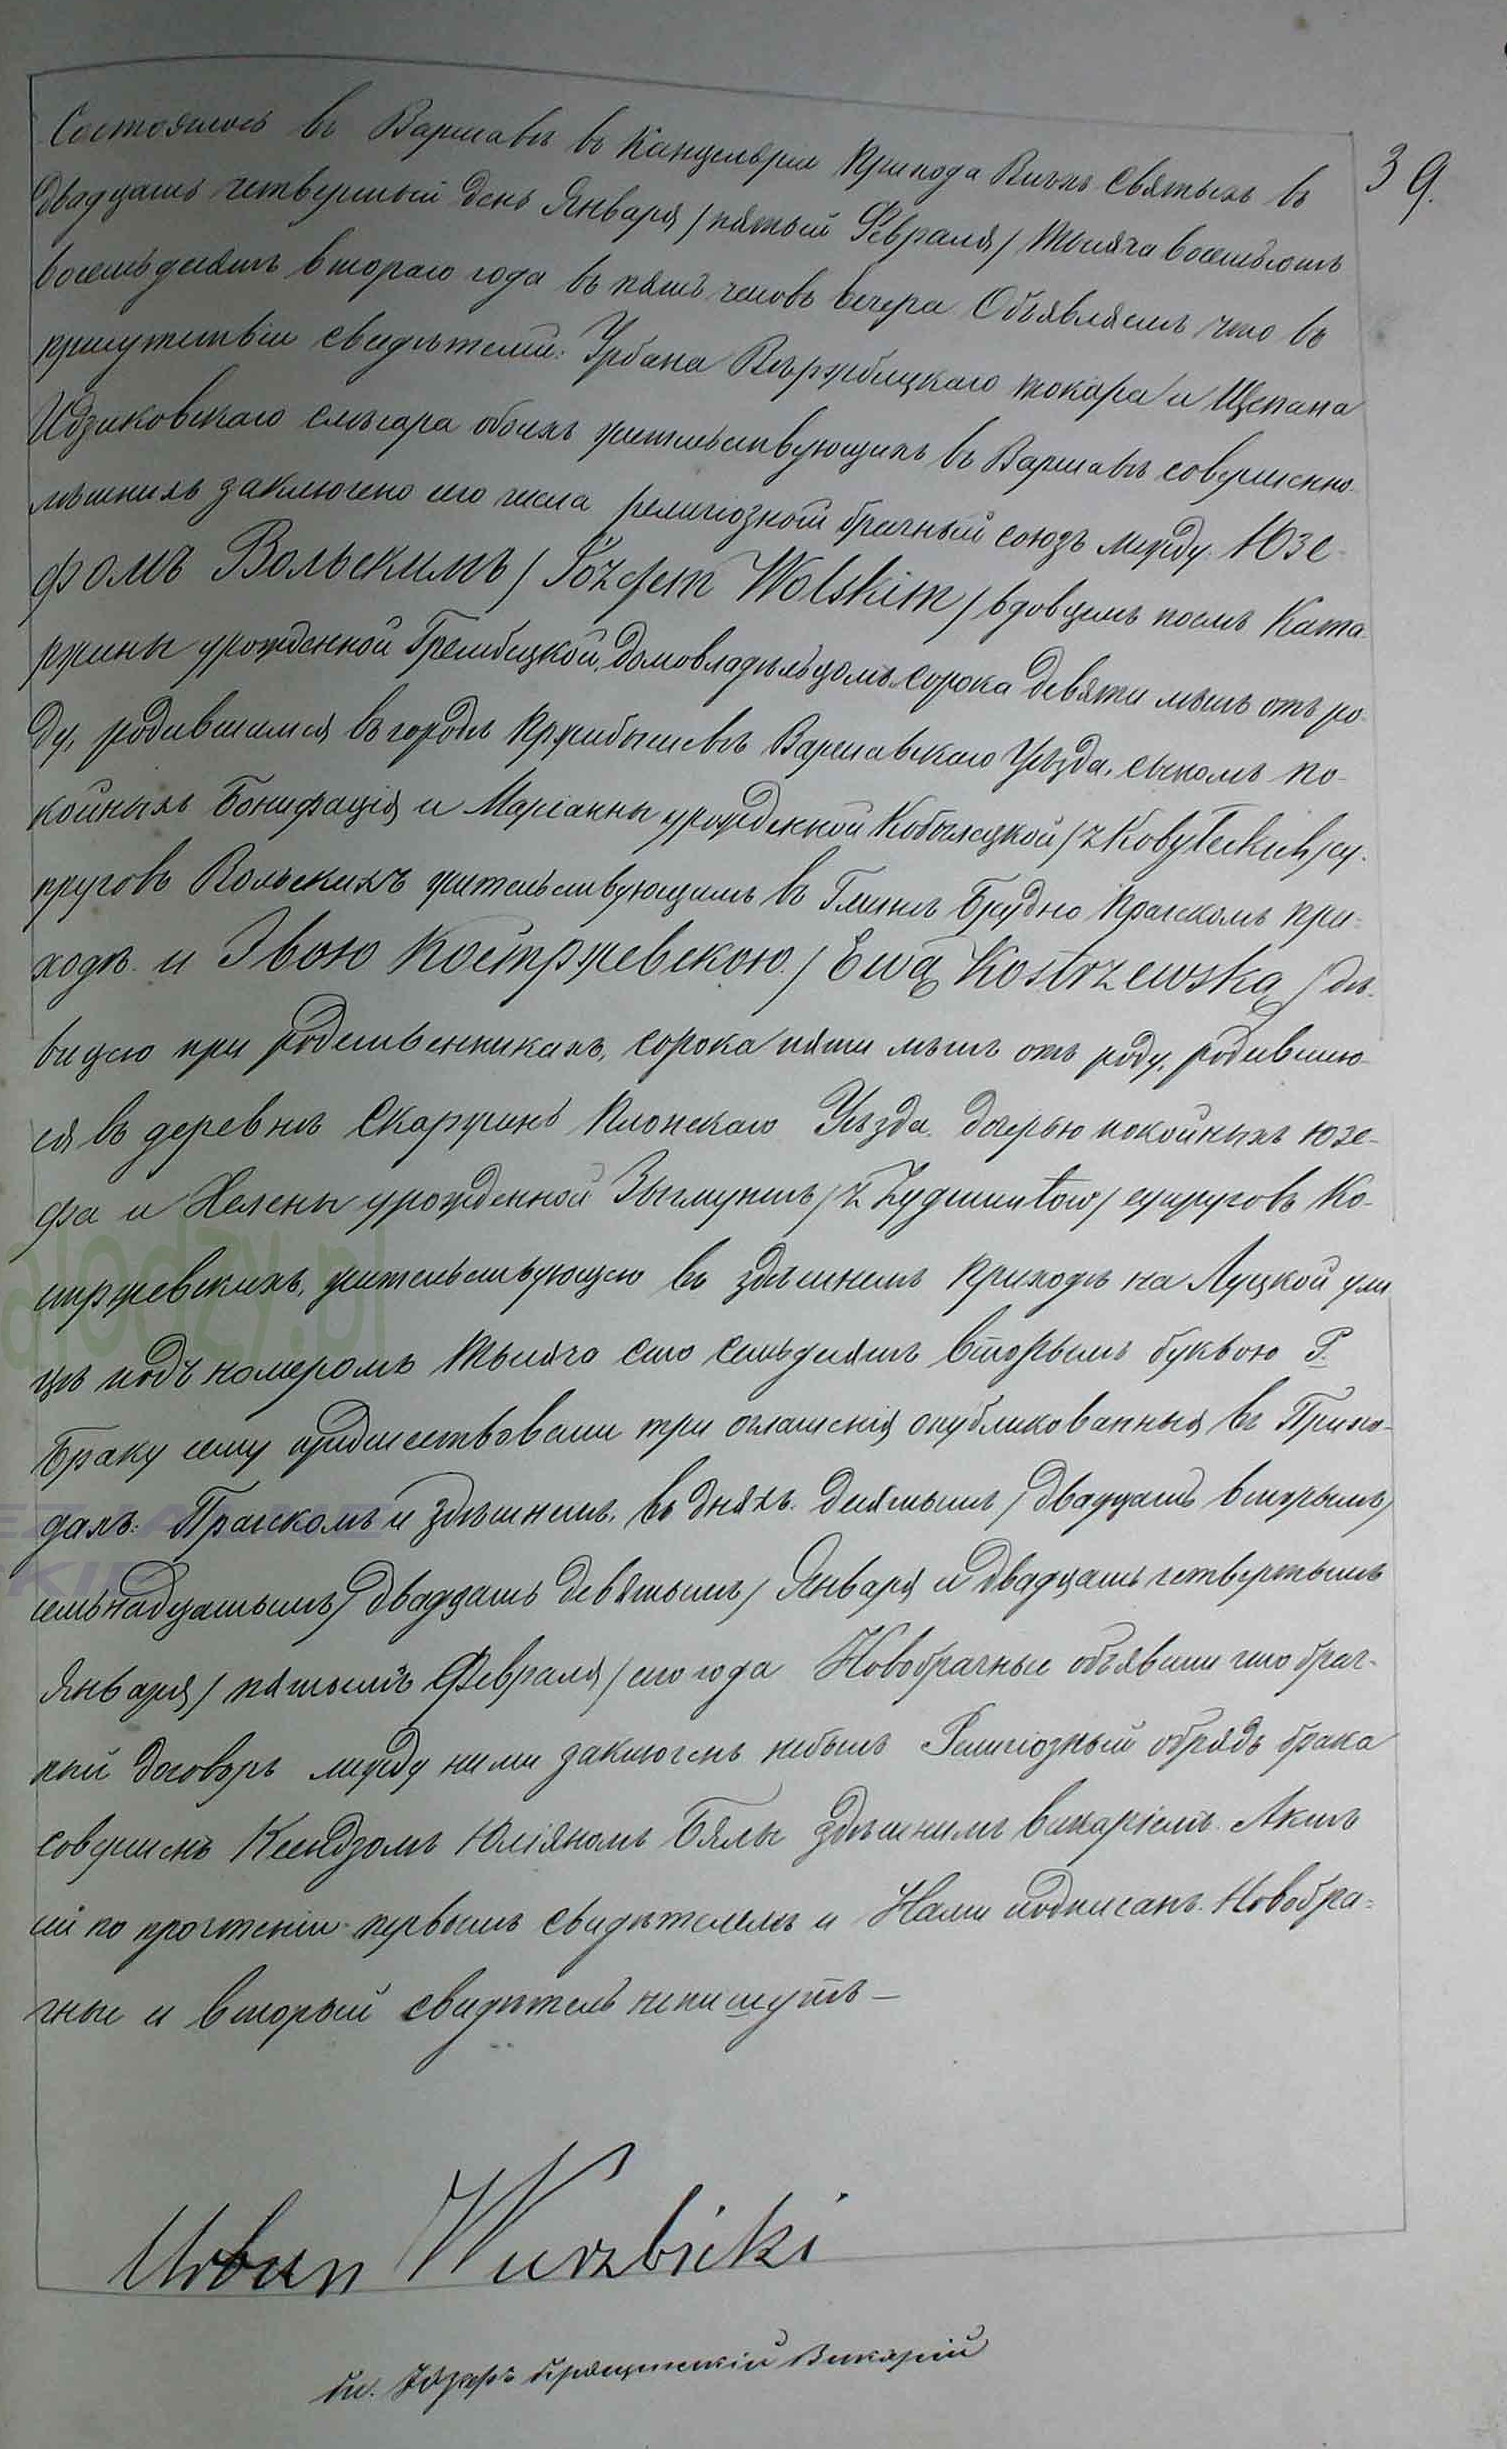 39.
Состоялось въ Варшавѣ въ Канцеляріи Прихода Всѣхъ Святыхъ въ
двадцать четвертый день Января / пятый Февраля / тысяча восемьсотъ
восемьдесятъ втораго года въ пять часовъ вечера Объявляемъ что въ
присутствіи свидѣтелей: Урбана Вѣржбицкаго токаря и Щепана
Идзиковскаго слѣсара обоихъ жительствующихъ въ Варшавѣ совершенно-
лѣтнихъ заключено сего числа религіозной брачный союзъ между Юзе-
фомъ Вольскимъ / Józefem Wolskim / вдовцемъ послѣ Ката-
ржины урожденной Грембецкой, домовладѣльцомъ сорока девяти лѣтъ отъ ро-
ду, родившимся въ городѣ Пржибышевѣ Варшавскаго Уѣзда, сыномъ по-
койныхъ Бонифація и Маріанны урожденной Кобылецкой / z Kobyłeckich / су-
пруговъ Вольскихъ жительствующимъ въ Гминѣ Брудно Прагскомъ При-
ходѣ. и Эвою Костржевскою / Ewą Kostrzewską / дѣ-
вицею при родственникахъ, сорока пяти лѣтъ отъ роду, родившею-
ся въ деревнѣ Скаржинѣ Плонскаго Уѣзда, дочерью покойныхъ Юзе-
фа и Хелены урожденной Зыгмунтъ / z Zygmuntów / супруговъ Ко-
стржевскихъ, жительствующею въ здѣшнемъ Приходѣ на Луцкой ули
цѣ подъ номеромъ тысяча сто семьдесятъ вторымъ буквою P.
Браку сему предшествовали три оглашенія опубликованныя въ Прихо-
дахъ: Прагскомъ и здѣшнемъ, въ дняхъ десятымъ / двадцать вторымъ /
семьнадцатымъ / двадцать девятымъ / Января и двадцать четвертымъ
Января / пятымъ Февраля / сего года Новобрачные объявили что брач-
ный договоръ между ними заключенъ небылъ Религіозный обрядъ брака
совершенъ Ксендзомъ Юліяномъ Бялы здѣшнимъ викаріемъ. Актъ
сей по прочтеніи первымъ свидѣтелемъ и Нами подписанъ. Новобра-
чные и вторый свидѣтель непишутъ —
Urban Wierzbicki
Кс. Юзефъ Викарій